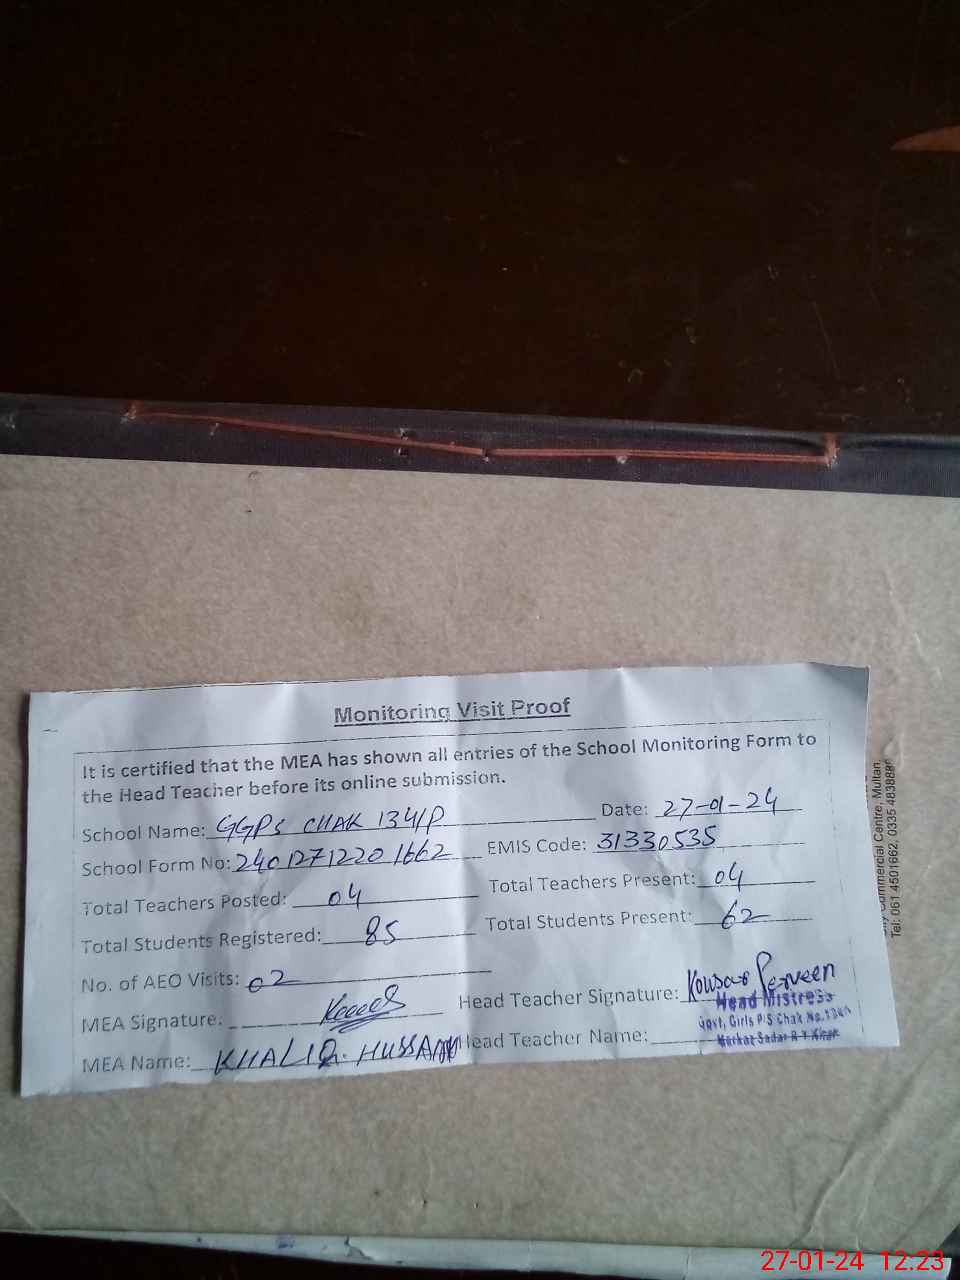 Monitoring Visit Proof
It is certified that the MEA has shown all entries of the School Monitoring Form to
the Head Teacher before its online submission.
School Name: GGPS CHAK 134/P Date: 27-01-24
School Form No: 24012712201662 EMIS Code: 31330535
Total Teachers Posted: 04 Total Teachers Present: 04
Total Students Registered: 85 Total Students Present: 62
No. of AEO Visits: 02
MEA Signature: Head Teacher Signature: Kousar Perveen
Head Mistress
MEA Name: KHALIQ. HUSSAIN Head Teacher Name:
Govt, Girls P/S Chak No.134/P
Markaz Sadar R Y Khan
Commercial Centre, Multan.
Tel: 061 4501662, 0335 483888
27-01-24 12:23